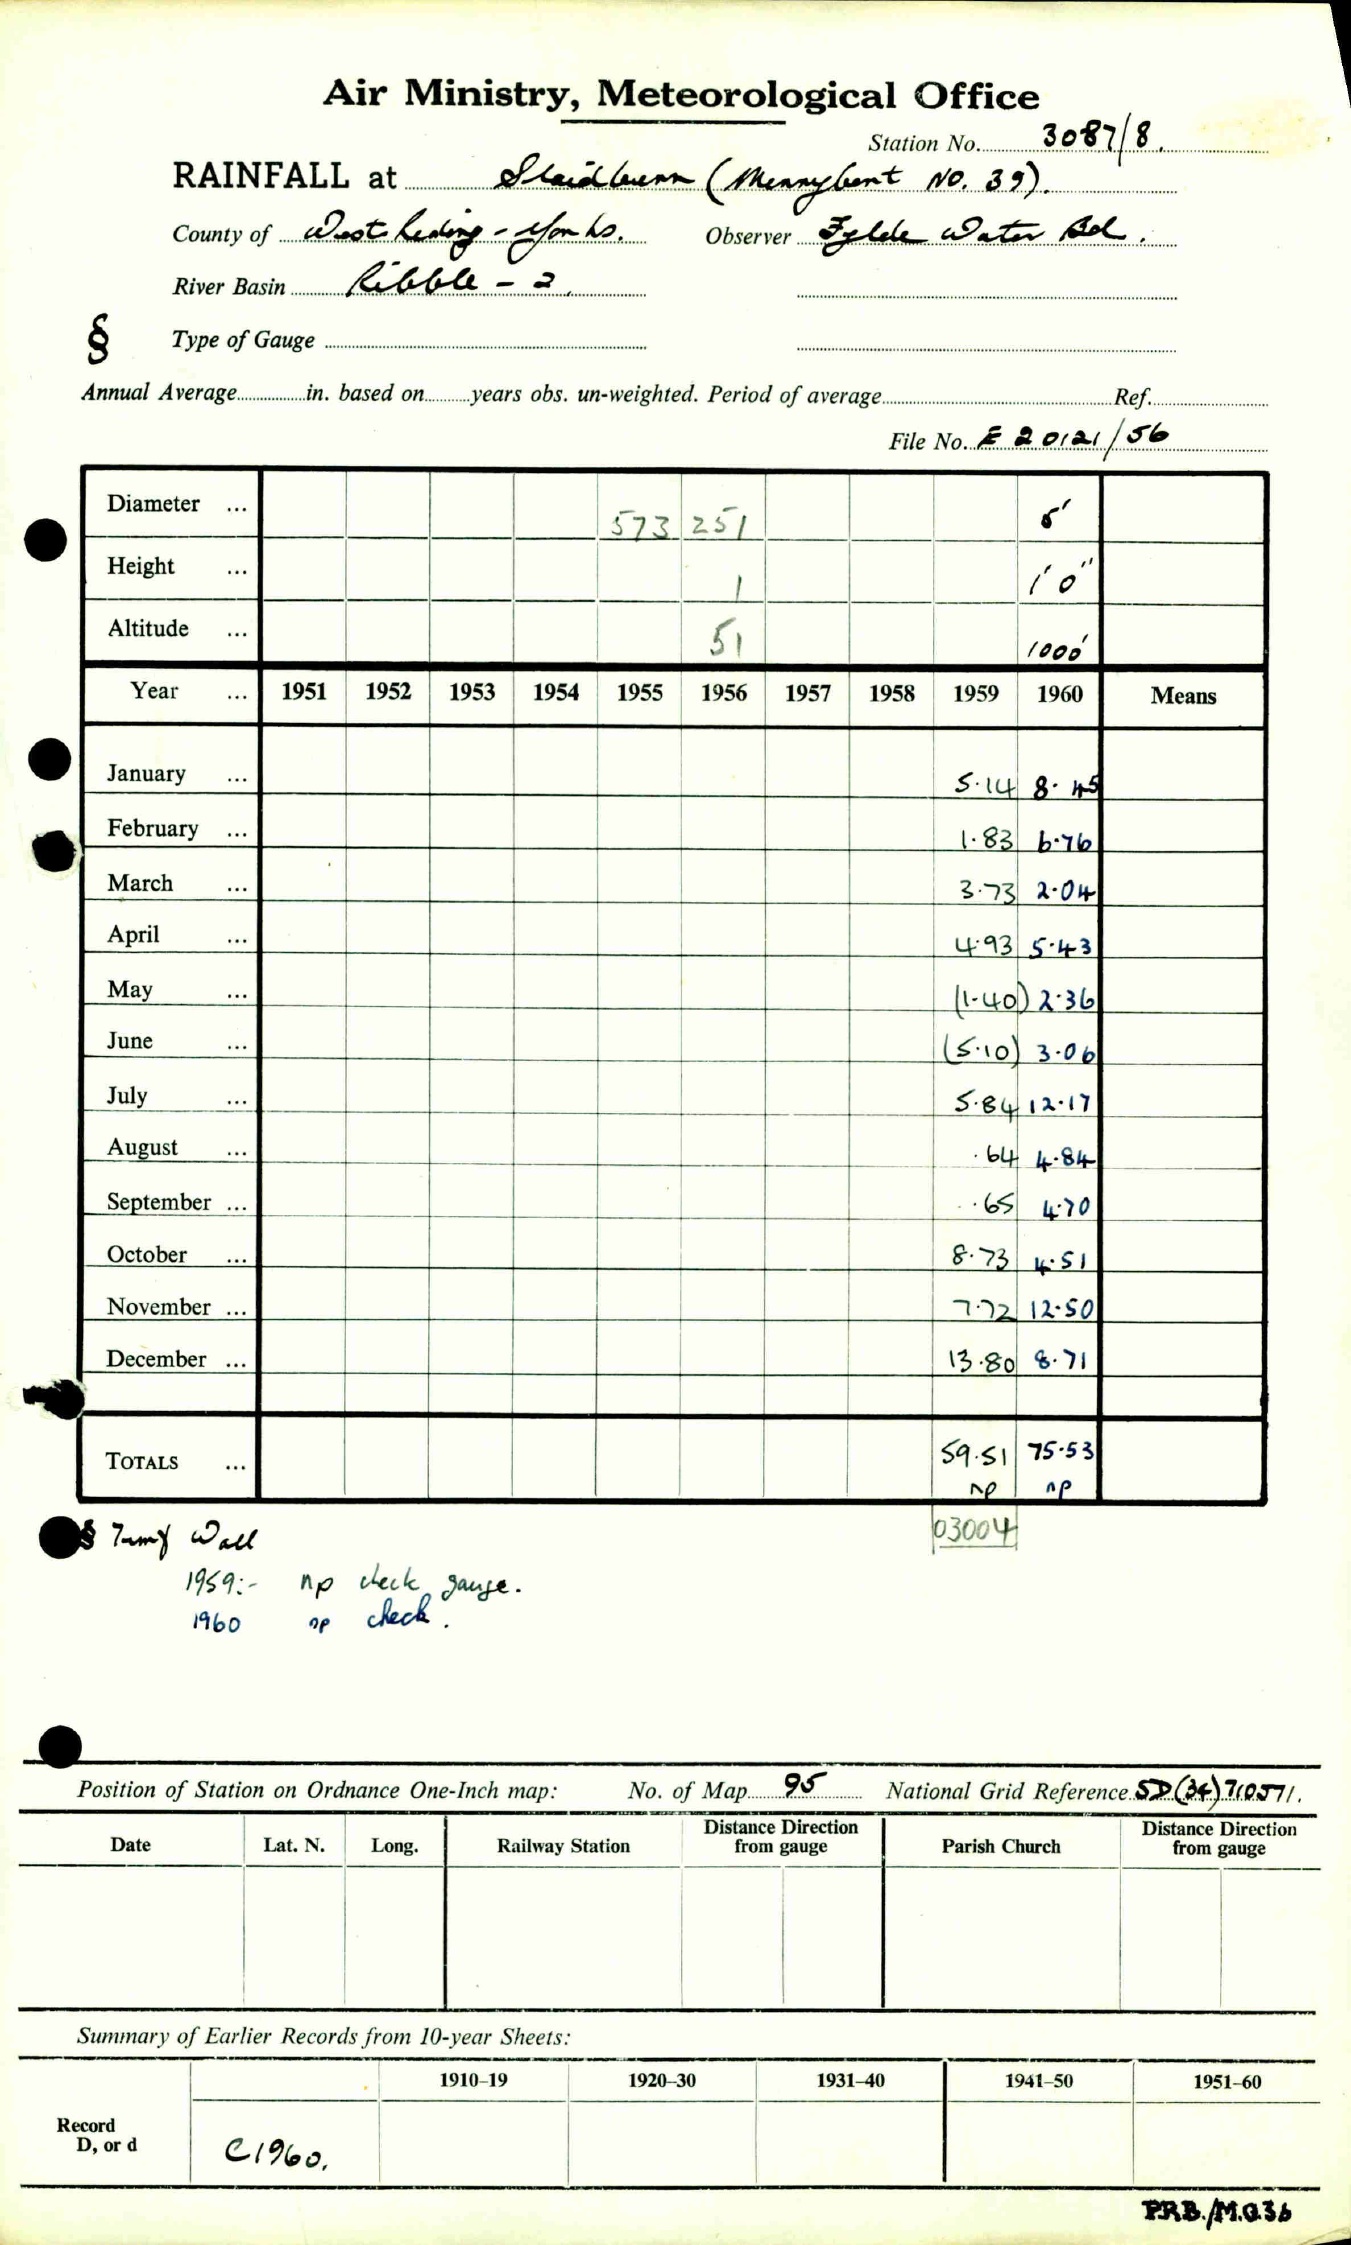 Air Ministry, Meteorological Office
Station No. 3087/8.
RAINFALL at Slaidburn (Merrybent No. 39).
County of West Riding - Yorks. Observer Fylde Water Bd.
River Basin Ribble - 2.
§ Type of Gauge
Annual Average in. based on years obs. un-weighted. Period of average Ref.
File No. E 20121/56
Diameter ... 573 251 5'
Height ... 1 1' 0"
Altitude ... 51 1000'
Year ... 1951 1952 1953 1954 1955 1956 1957 1958 1959 1960 Means
January ... 5.14 8.45
February ... 1.83 6.76
March ... 3.73 2.04
April ... 4.93 5.43
May ... (1.40) 2.36
June ... (5.10) 3.06
July ... 5.84 12.17
August ... .64 4.84
September ... .65 4.70
October ... 8.73 4.51
November ... 7.72 12.50
December ... 13.80 8.71
TOTALS ... 59.51 75.53
np np
03004
§ Turf Wall
1959:- np check gauge.
1960 np check.
Position of Station on Ordnance One-Inch map: No. of Map 95 National Grid Reference SD(34)710571.
Date Lat. N. Long. Railway Station Distance Direction from gauge Parish Church Distance Direction from gauge
Summary of Earlier Records from 10-year Sheets:
1910–19 1920–30 1931–40 1941–50 1951–60
Record
D, or d C1960.
P.R.B./M.O.36